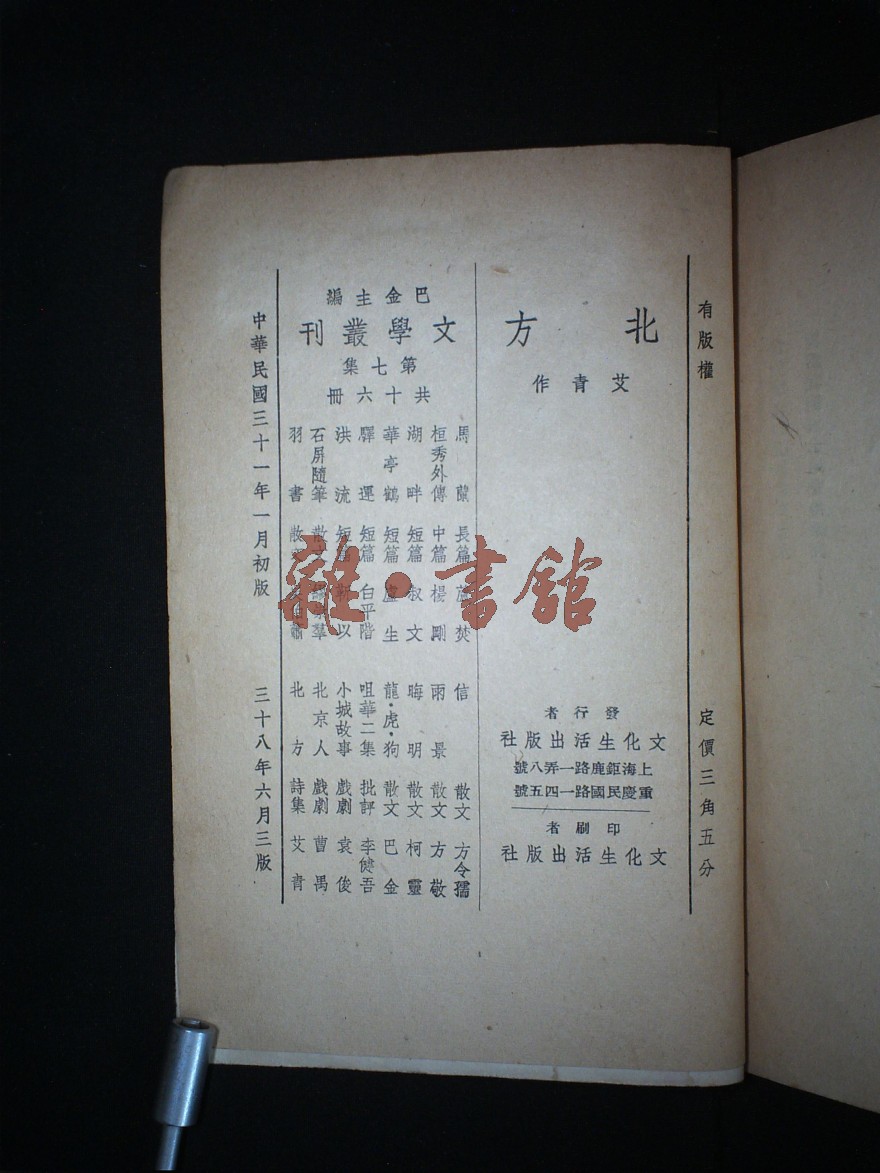 有版權
定價三角五分
北方
艾青作
發行者
文化生活出版社
上海鉅鹿路一弄八號
重慶民國路一四五號
印刷者
文化生活出版社
巴金主編
文學叢刊
第七集
共十六冊
馬蘭 長篇 蘆焚
桓秀外傳 中篇 楊剛
湖畔 短篇 叔文
華亭鶴 短篇 盧生
驛運 短篇 白平階
洪流 短篇 靳以
石屏隨筆 散文 羣
羽書 散文
信 散文 方令孺
雨景 散文 方敬
晦明 散文 柯靈
龍·虎·狗 散文 巴金
咀華二集 批評 李健吾
小城故事 戲劇 袁俊
北京人 戲劇 曹禺
北方 詩集 艾青
中華民國三十一年一月初版
三十八年六月三版
雜·書館